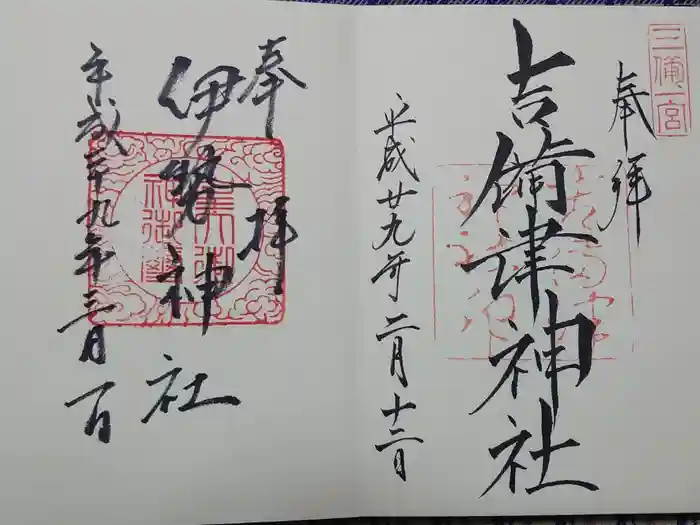 三備一宮
奉拝
吉備津神社
平成廿九年二月十二日
奉拝
伊勢神社
平成二十九年三月一日